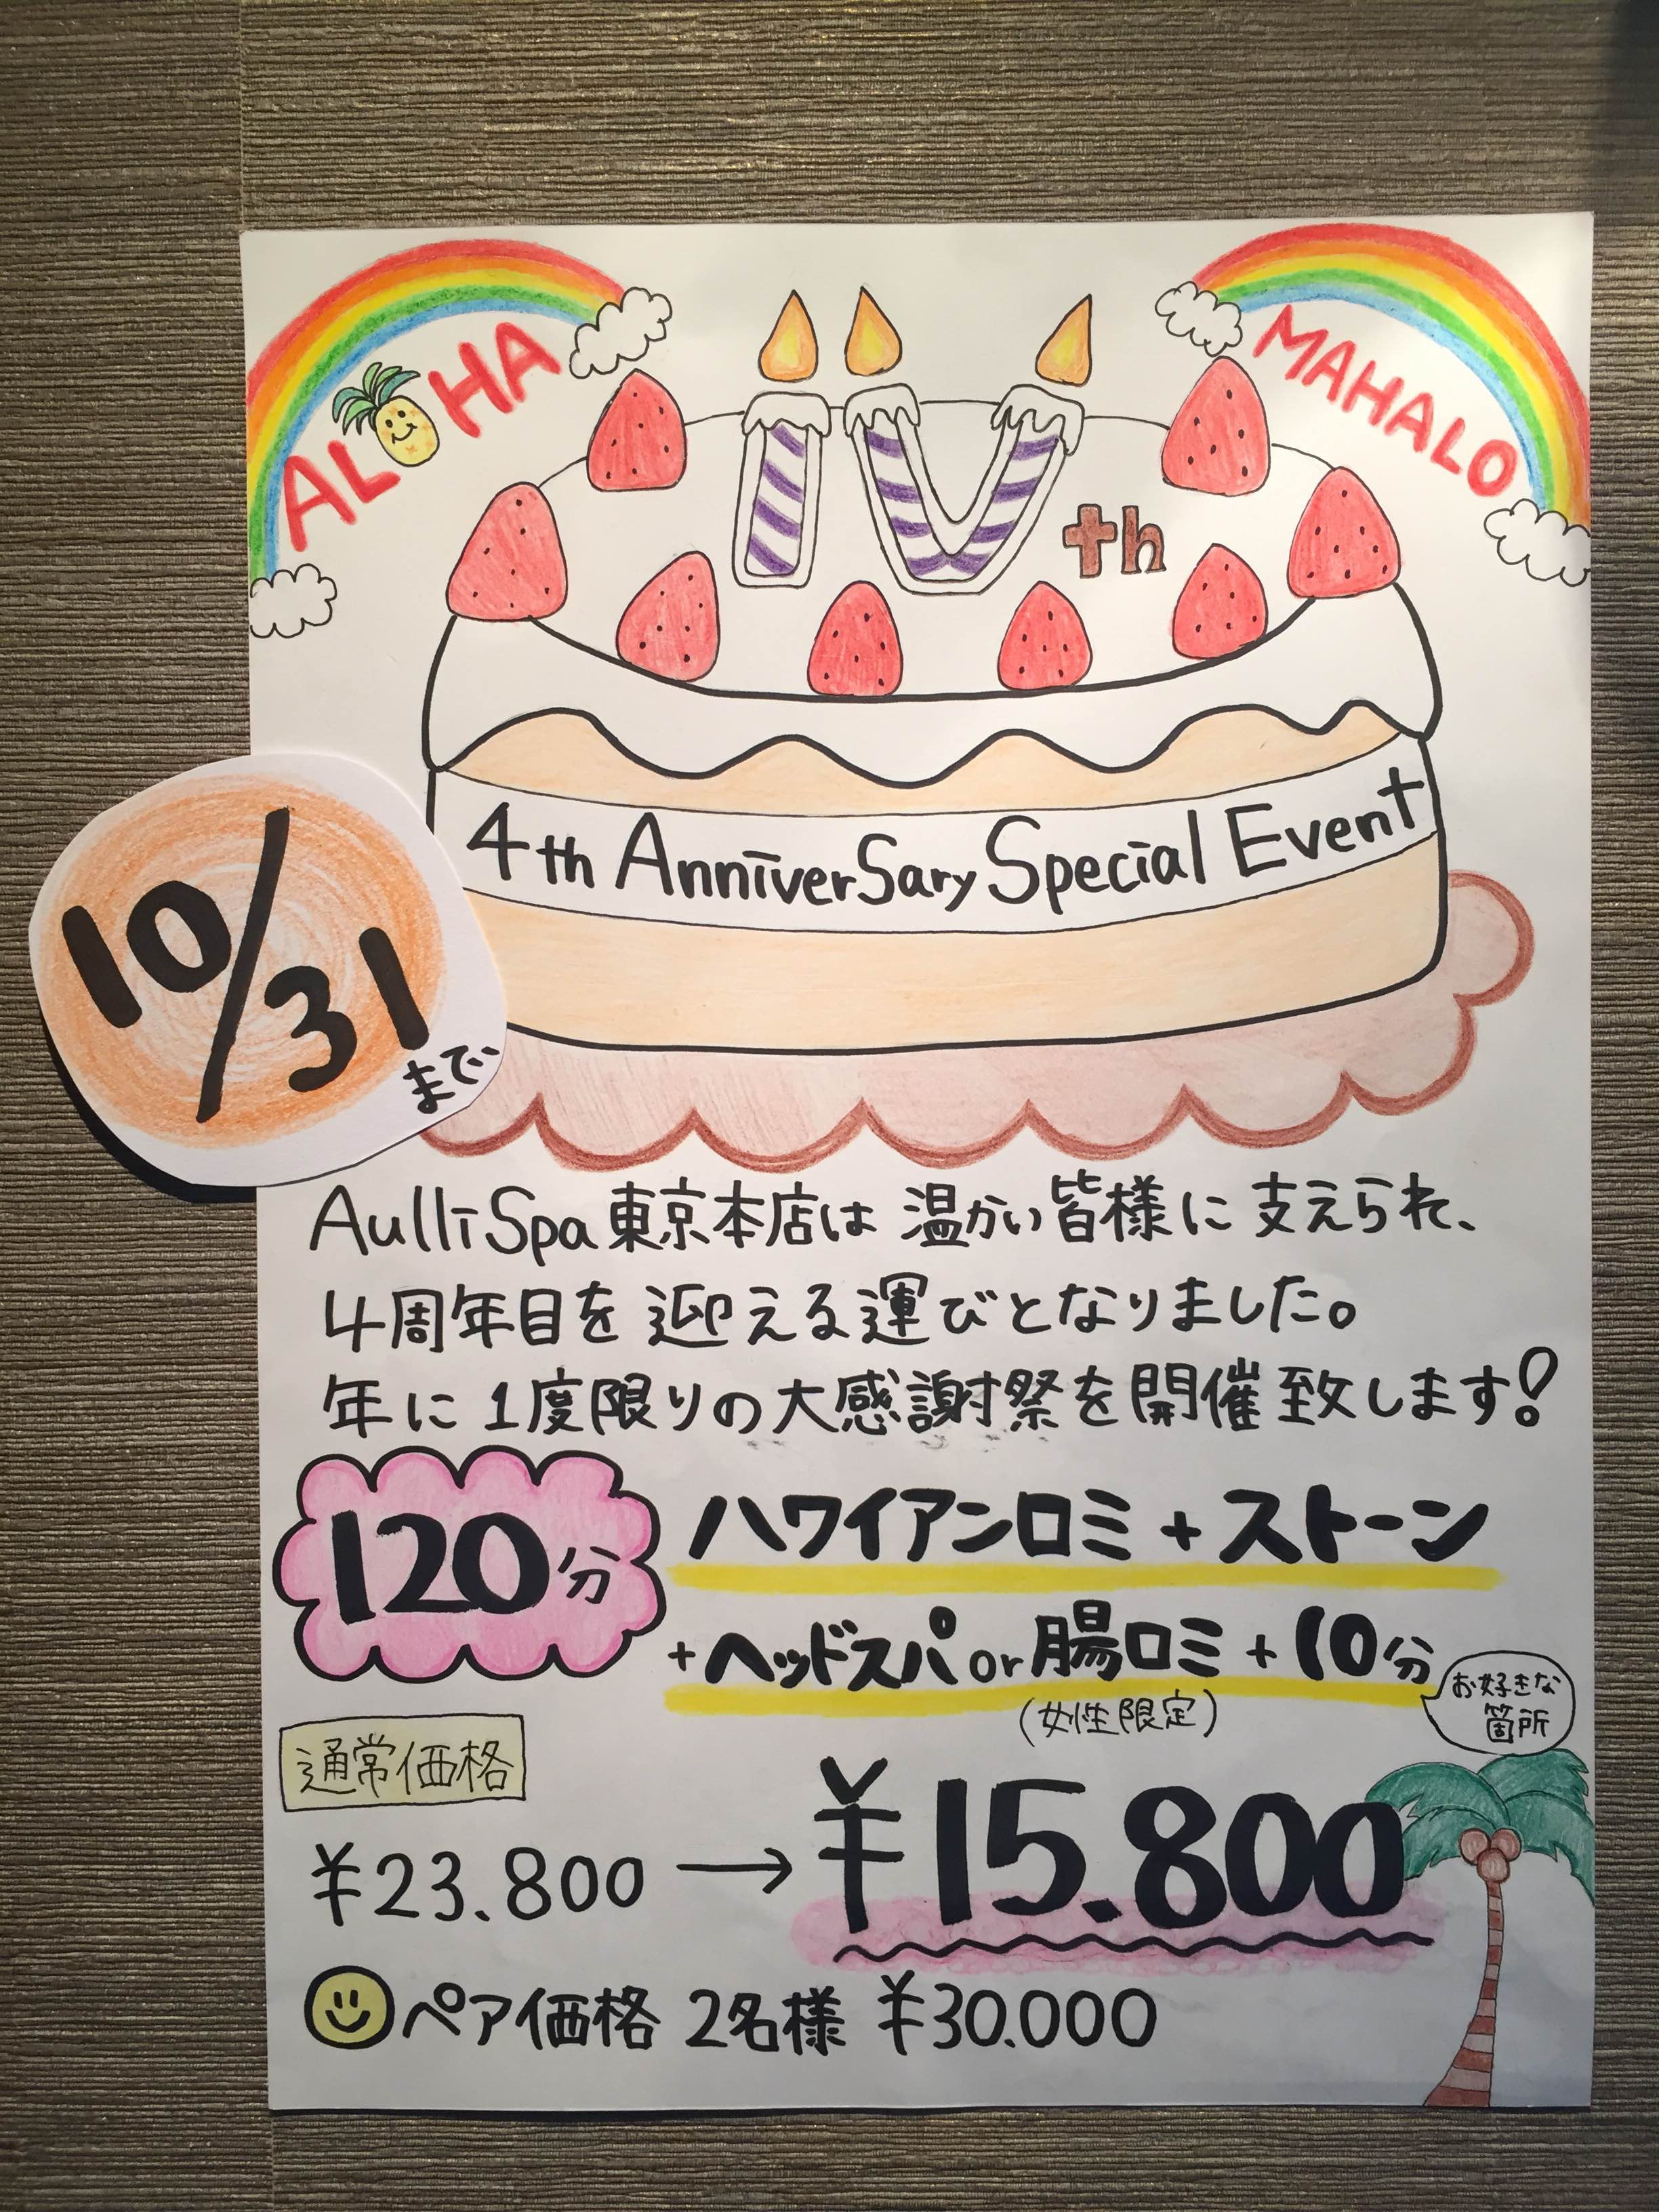 ALOHA
MAHALO
IV th
4th Anniversary Special Event
10/31
まで
Aulli Spa 東京本店は 温かい皆様に支えられ、
4周年目を迎える運びとなりました。
年に1度限りの大感謝祭を開催致します!
120分
ハワイアンロミ + ストーン
+ ヘッドスパ or 腸ロミ + 10分
(女性限定)
お好きな
箇所
通常価格
¥23.800 → ¥15.800
ペア価格 2名様 ¥30.000